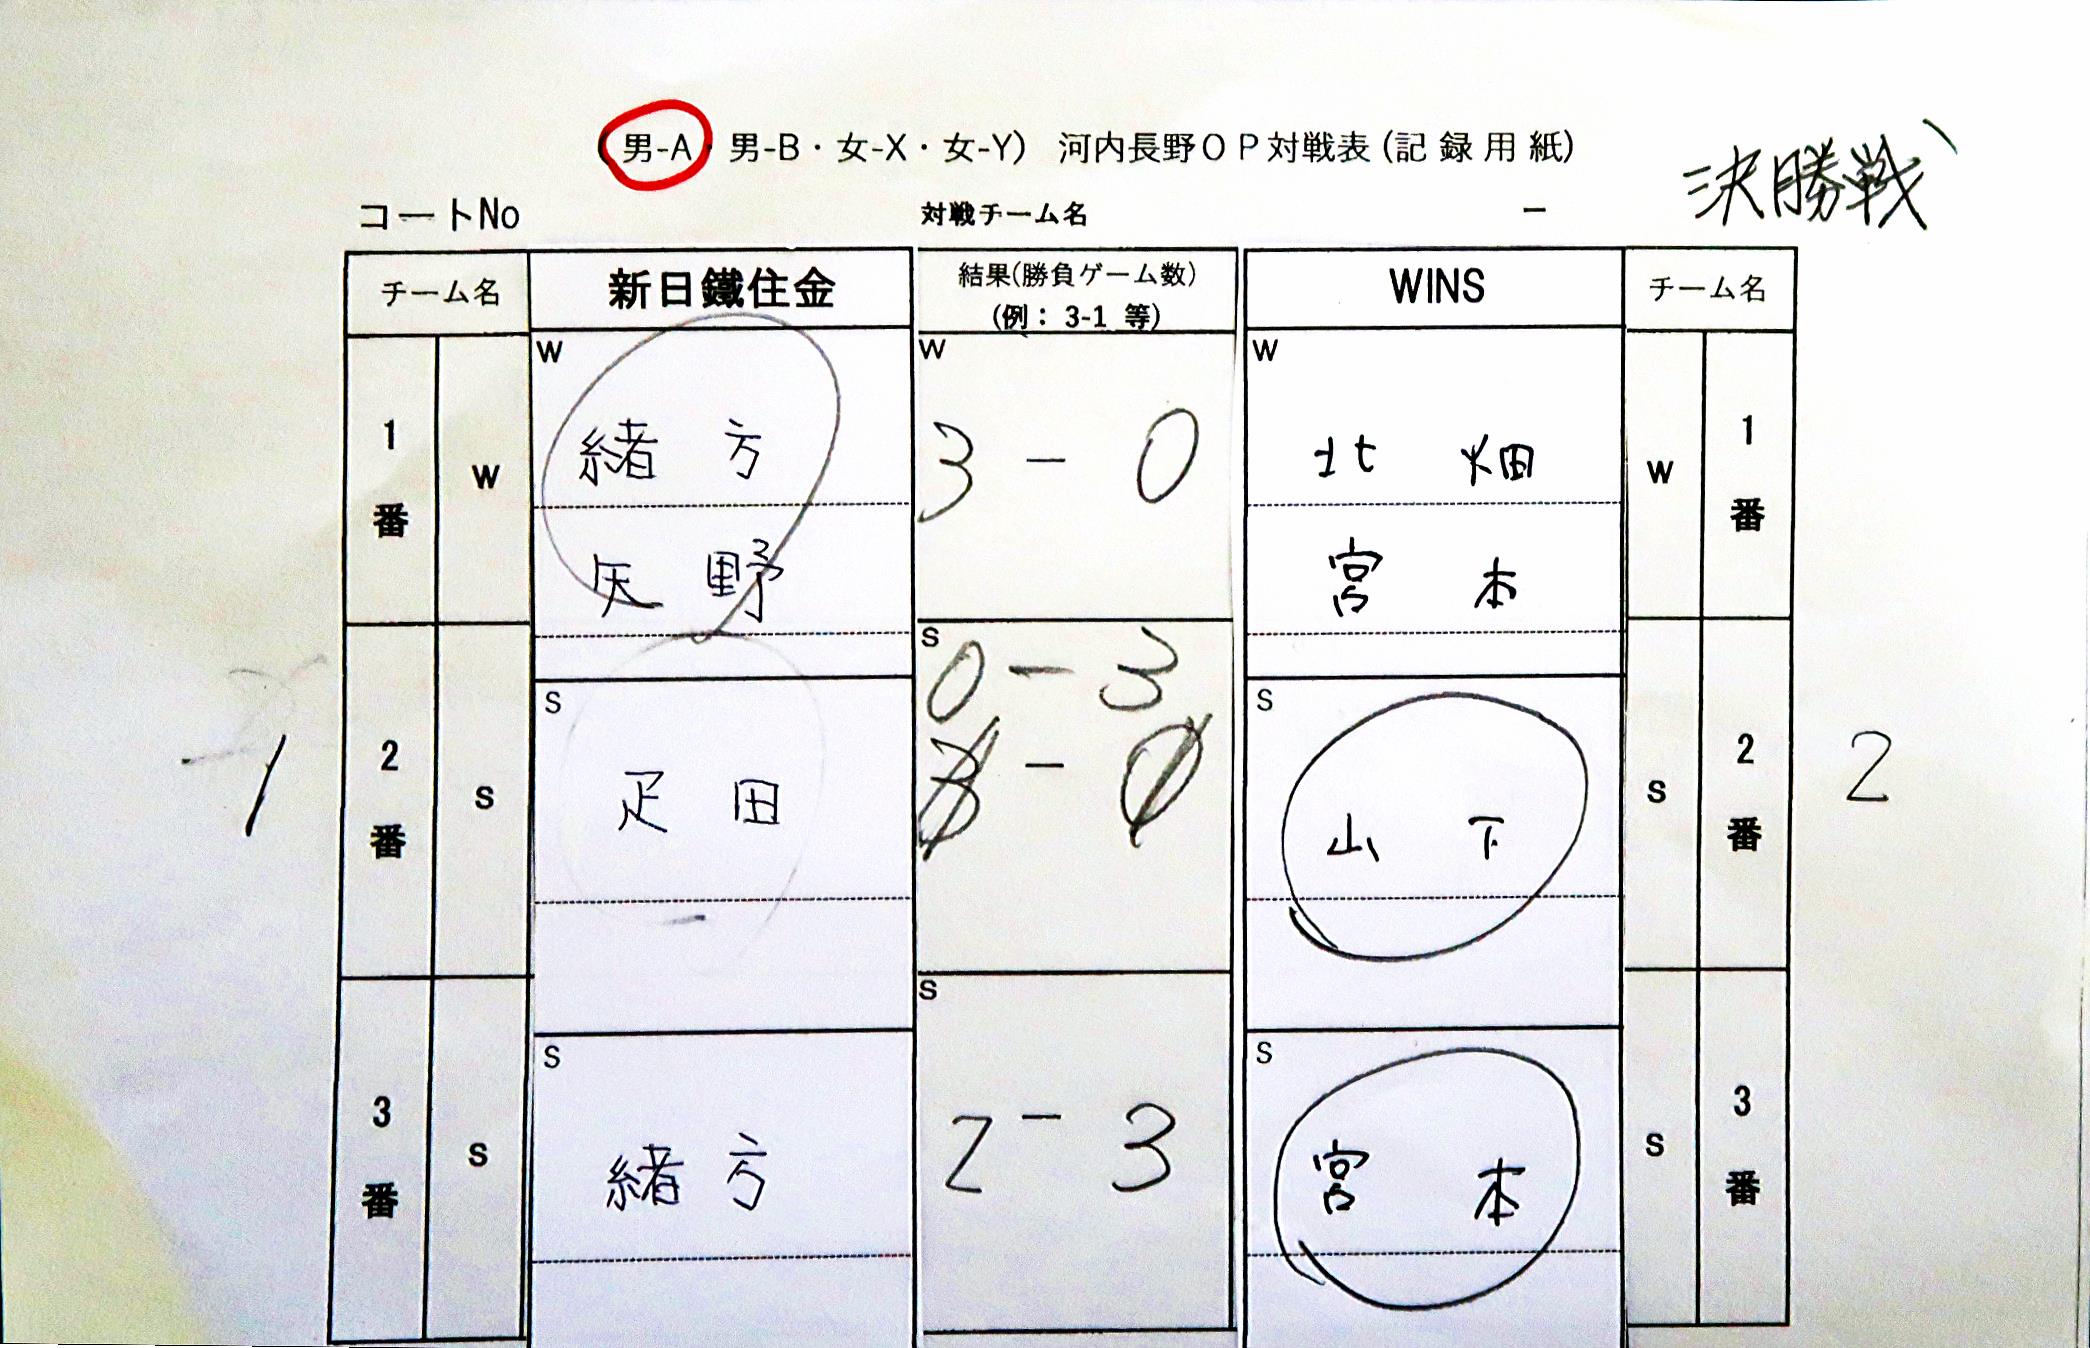 (男-A・男-B・女-X・女-Y) 河内長野OP対戦表(記録用紙)
決勝戦
コートNo 対戦チーム名 -
チーム名 新日鐵住金 結果(勝負ゲーム数) WINS チーム名
(例: 3-1 等)
W W W
1 緒方 3 - 0 北畑 1
番 W 矢野 宮本 W 番
S
0 - 3
S S
2 3 - 0 2
1 番 S 疋田 山下 S 番 2
S
S S
3 緒方 2 - 3 宮本 3
番 S S 番